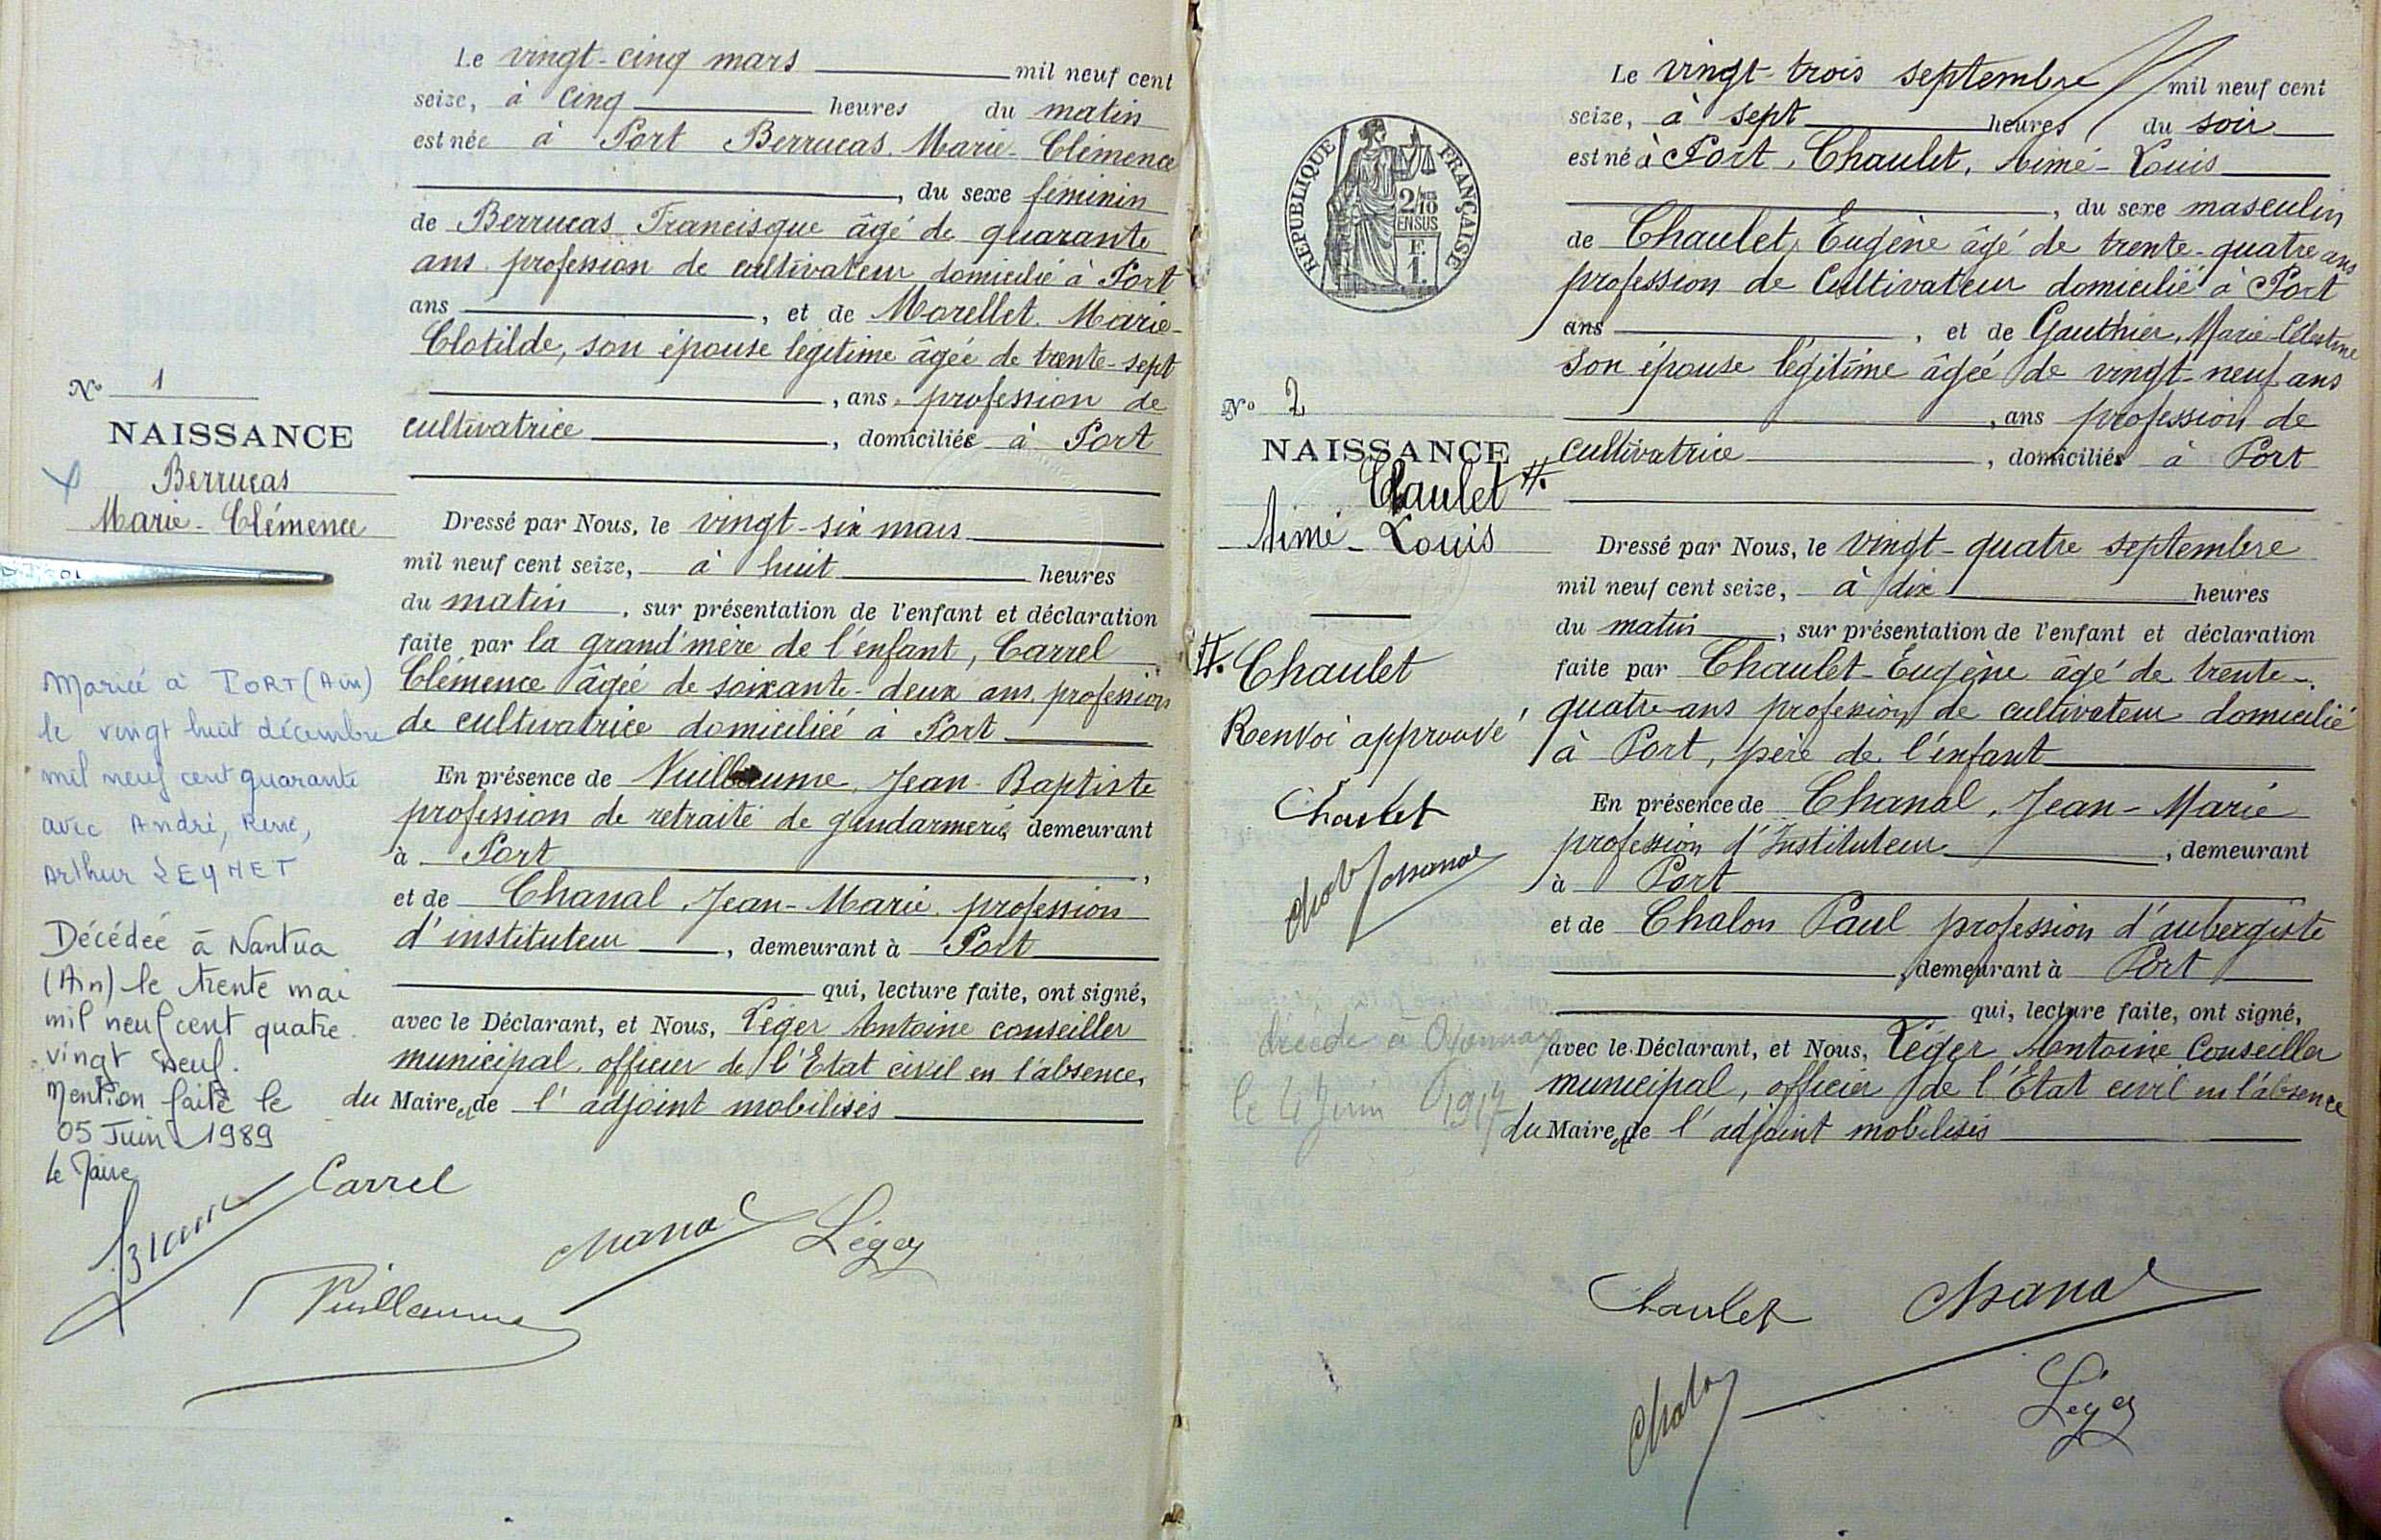 Le vingt-cinq mars mil neuf cent
seize, à cinq heures du matin
est née à Port Berrucas. Marie-Clémence
, du sexe féminin
de Berrucas Francisque âgé de quarante
ans profession de cultivateur domicilié à Port
ans , et de Morellet. Marie-
Clotilde, son épouse légitime âgée de trente-sept
, ans, profession de
cultivatrice , domiciliée à Port
Nº 1
NAISSANCE
Berrucas
Marie-Clémence
Dressé par Nous, le vingt-six mars
mil neuf cent seize, à huit heures
du matin , sur présentation de l'enfant et déclaration
faite par la grand'mère de l'enfant, Carrel
Clémence âgée de soixante-deux ans, profession
de cultivatrice domiciliée à Port
En présence de Vuillaume, Jean-Baptiste
profession de retraité de gendarmerie, demeurant
à Port ,
et de Chanal, Jean-Marie, profession
d'instituteur , demeurant à Port
qui, lecture faite, ont signé,
avec le Déclarant, et Nous, Léger Antoine conseiller
municipal, officier de l'Etat civil en l'absence,
du Maire et de l'adjoint mobilisés
Mariée à PORT (Ain)
le vingt huit décembre
mil neuf cent quarante
avec André, René,
Arthur LEYNET
Décédée à Nantua
(Ain) le trente mai
mil neuf cent quatre
vingt neuf.
Mention faite le
05 Juin 1989
le Maire
Carrel
Chanal Léger
Vuillaume
Le vingt-trois septembre mil neuf cent
seize, à sept heures du soir
est né à Port, Chaulet, Aimé-Louis
, du sexe masculin
de Chaulet, Eugène âgé de trente-quatre ans
profession de Cultivateur domicilié à Port
ans , et de Gauthier, Marie-Célestine
son épouse légitime âgée de vingt-neuf ans
, ans profession de
cultivatrice , domiciliés à Port
REPUBLIQUE FRANÇAISE
2/10
EN SUS
F.
1.
Nº 2
NAISSANCE
Chaulet #.
Aimé-Louis
#. Chaulet
Renvoi approuvé
Chaulet
Chalon Chanal
décédé à Oyonnax
le 4 Juin 1917
Dressé par Nous, le vingt-quatre septembre
mil neuf cent seize, à dix heures
du matin , sur présentation de l'enfant et déclaration
faite par Chaulet-Eugène âgé de trente-
quatre ans profession de cultivateur domicilié
à Port, père de l'enfant
En présence de Chanal, Jean-Marie
profession d'Instituteur , demeurant
à Port
et de Chalon Paul profession d'aubergiste
, demeurant à Port
qui, lecture faite, ont signé,
avec le Déclarant, et Nous, Léger Antoine Conseiller
municipal, officier de l'Etat civil en l'absence
du Maire et de l'adjoint mobilisés
Chaulet Chanal
Chalon Léger